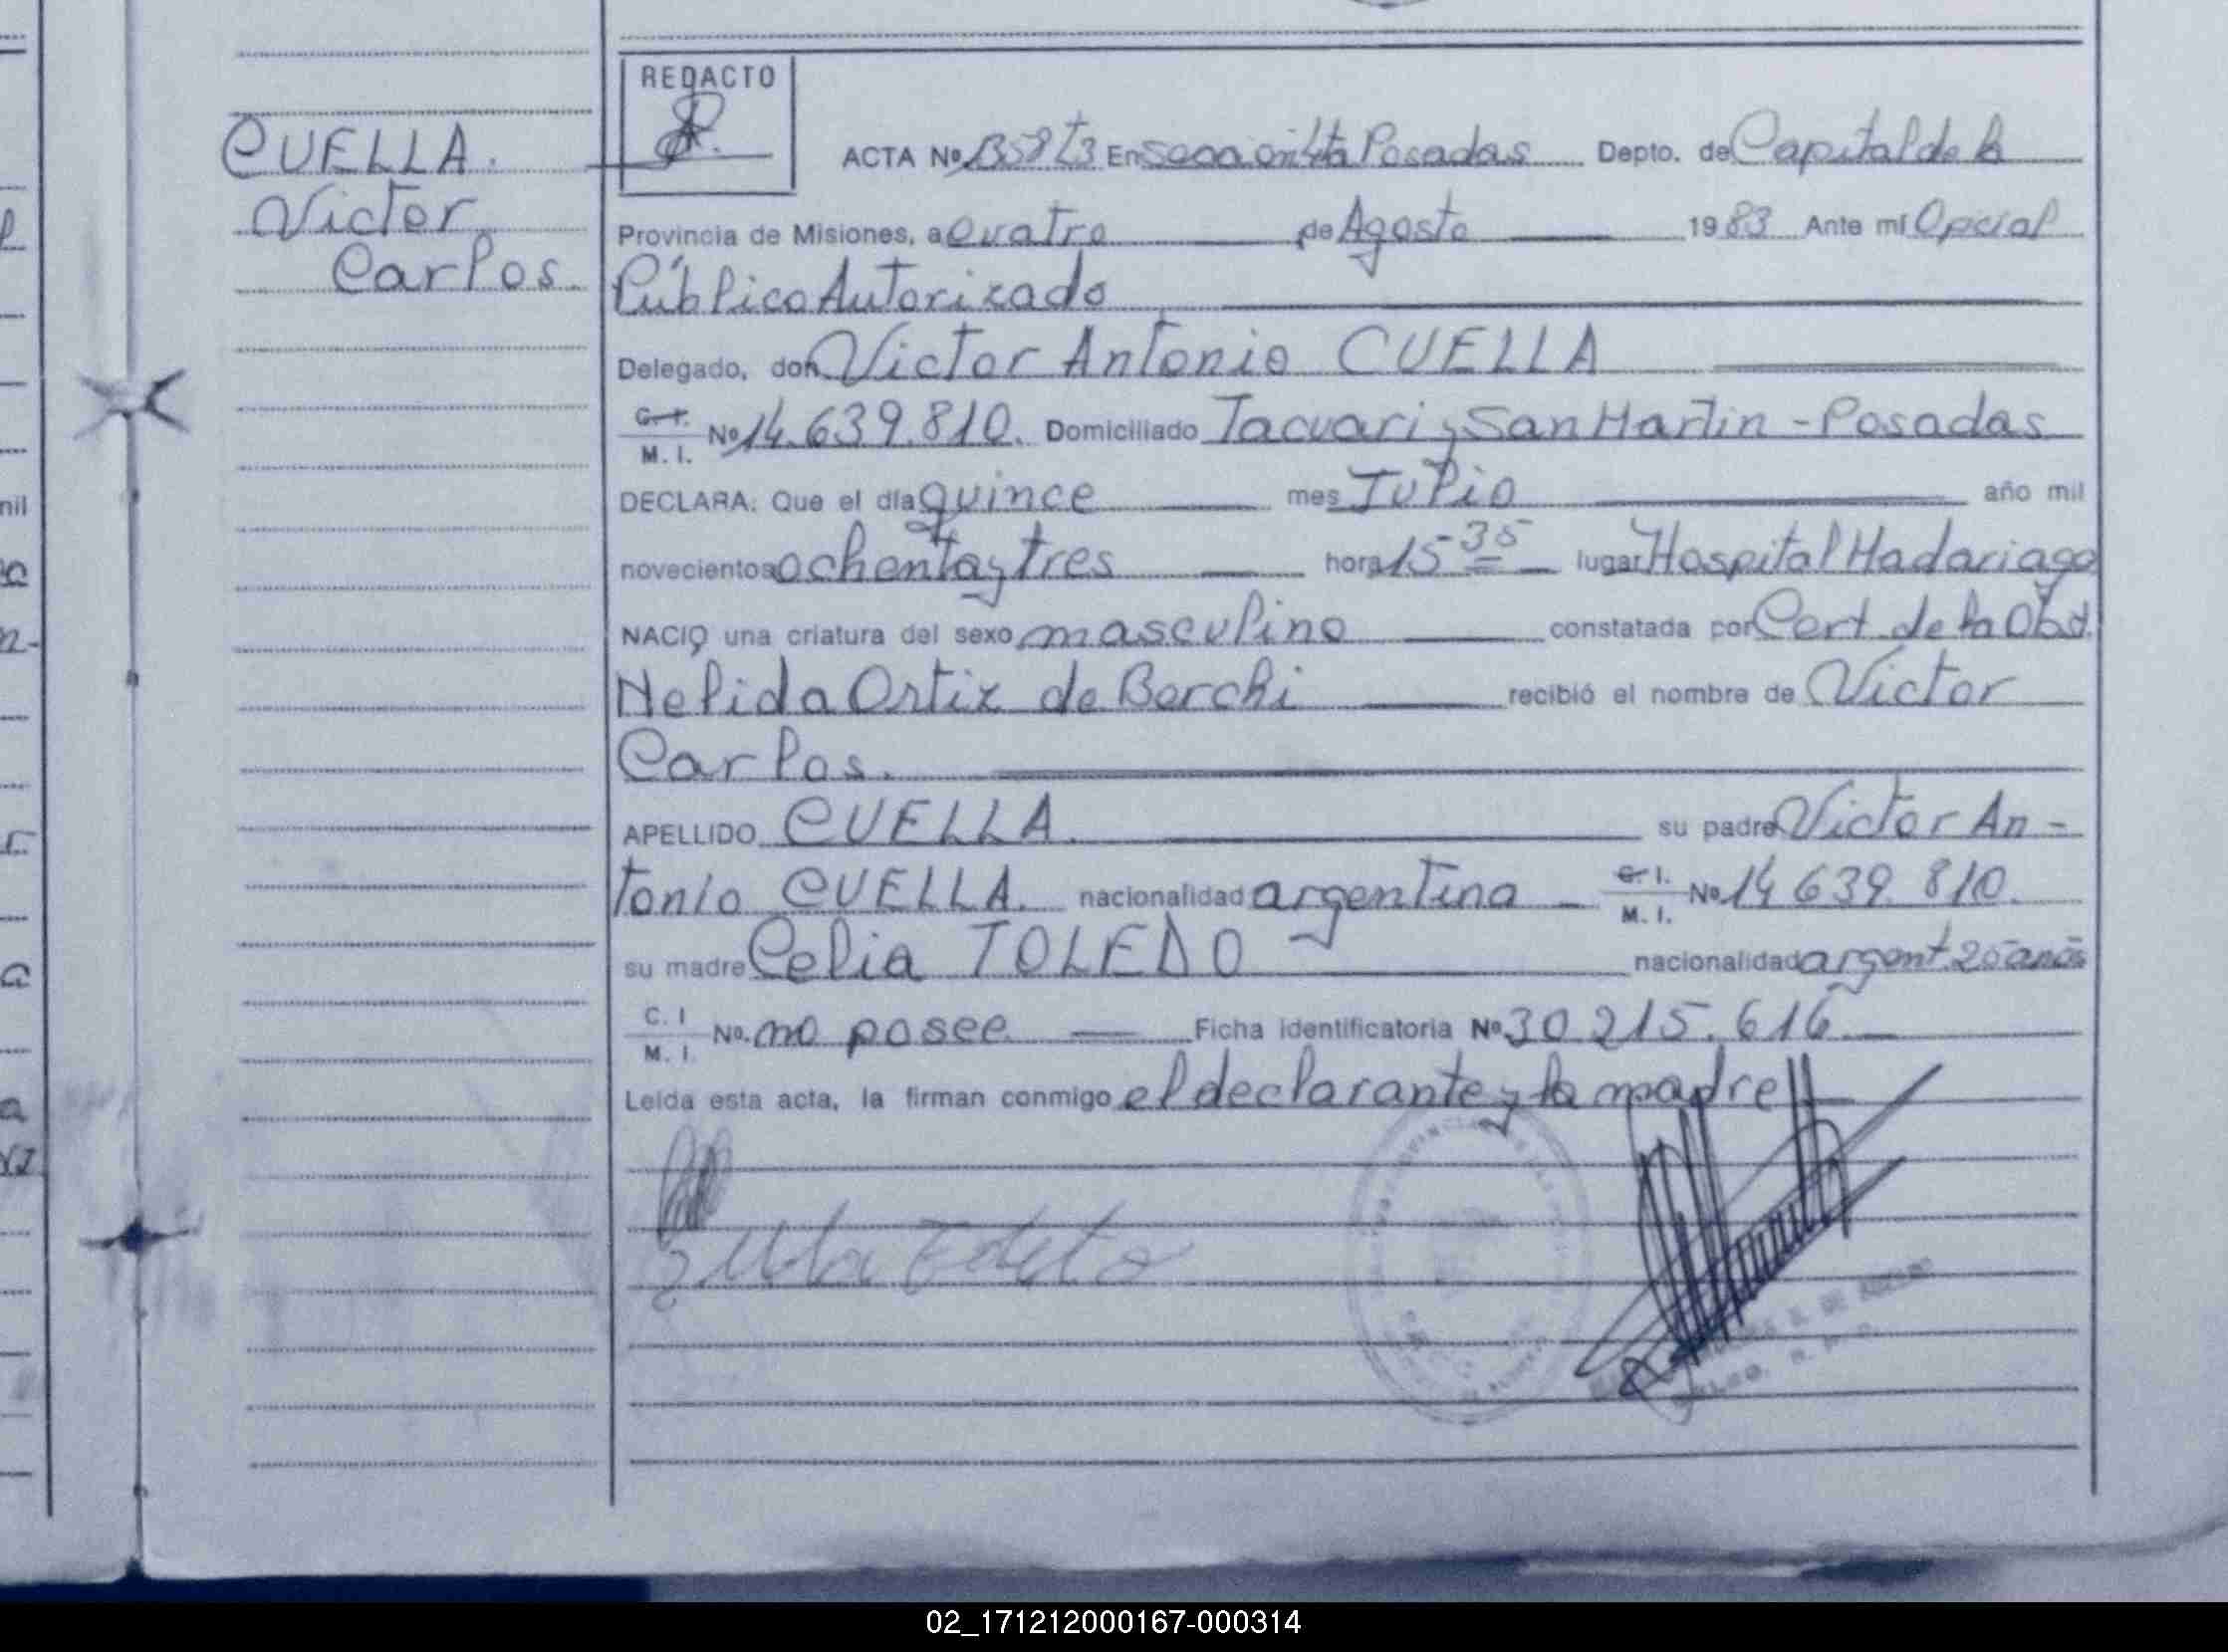 CUELLA.
Victor
Carlos.
REDACTO
ACTA Nº En Sección 4ta Posadas Depto. de Capital de la
Provincia de Misiones, a cuatro de Agosto 1983 Ante mí Oficial
Público Autorizado
Delegado, don Victor Antonio CUELLA
C. I. M. I. Nº 14.639.810. Domiciliado Tacuari y San Martin - Posadas
DECLARA: Que el día quince mes Julio año mil
novecientos ochenta y tres hora 15 35 lugar Hospital Madariaga
NACIO una criatura del sexo masculino constatada por Cert. de la Obst.
Nelida Ortiz de Borchi recibió el nombre de Victor
Carlos.
APELLIDO CUELLA. su padre Victor An-
tonio CUELLA. nacionalidad argentina C. I. M. I. Nº 14 639. 810.
su madre Celia TOLEDO nacionalidad argent. 25 años
C. I M. I. Nº. no posee Ficha identificatoria Nº 30 215. 616
Leída esta acta, la firman conmigo el declarante y la madre
02_171212000167-000314